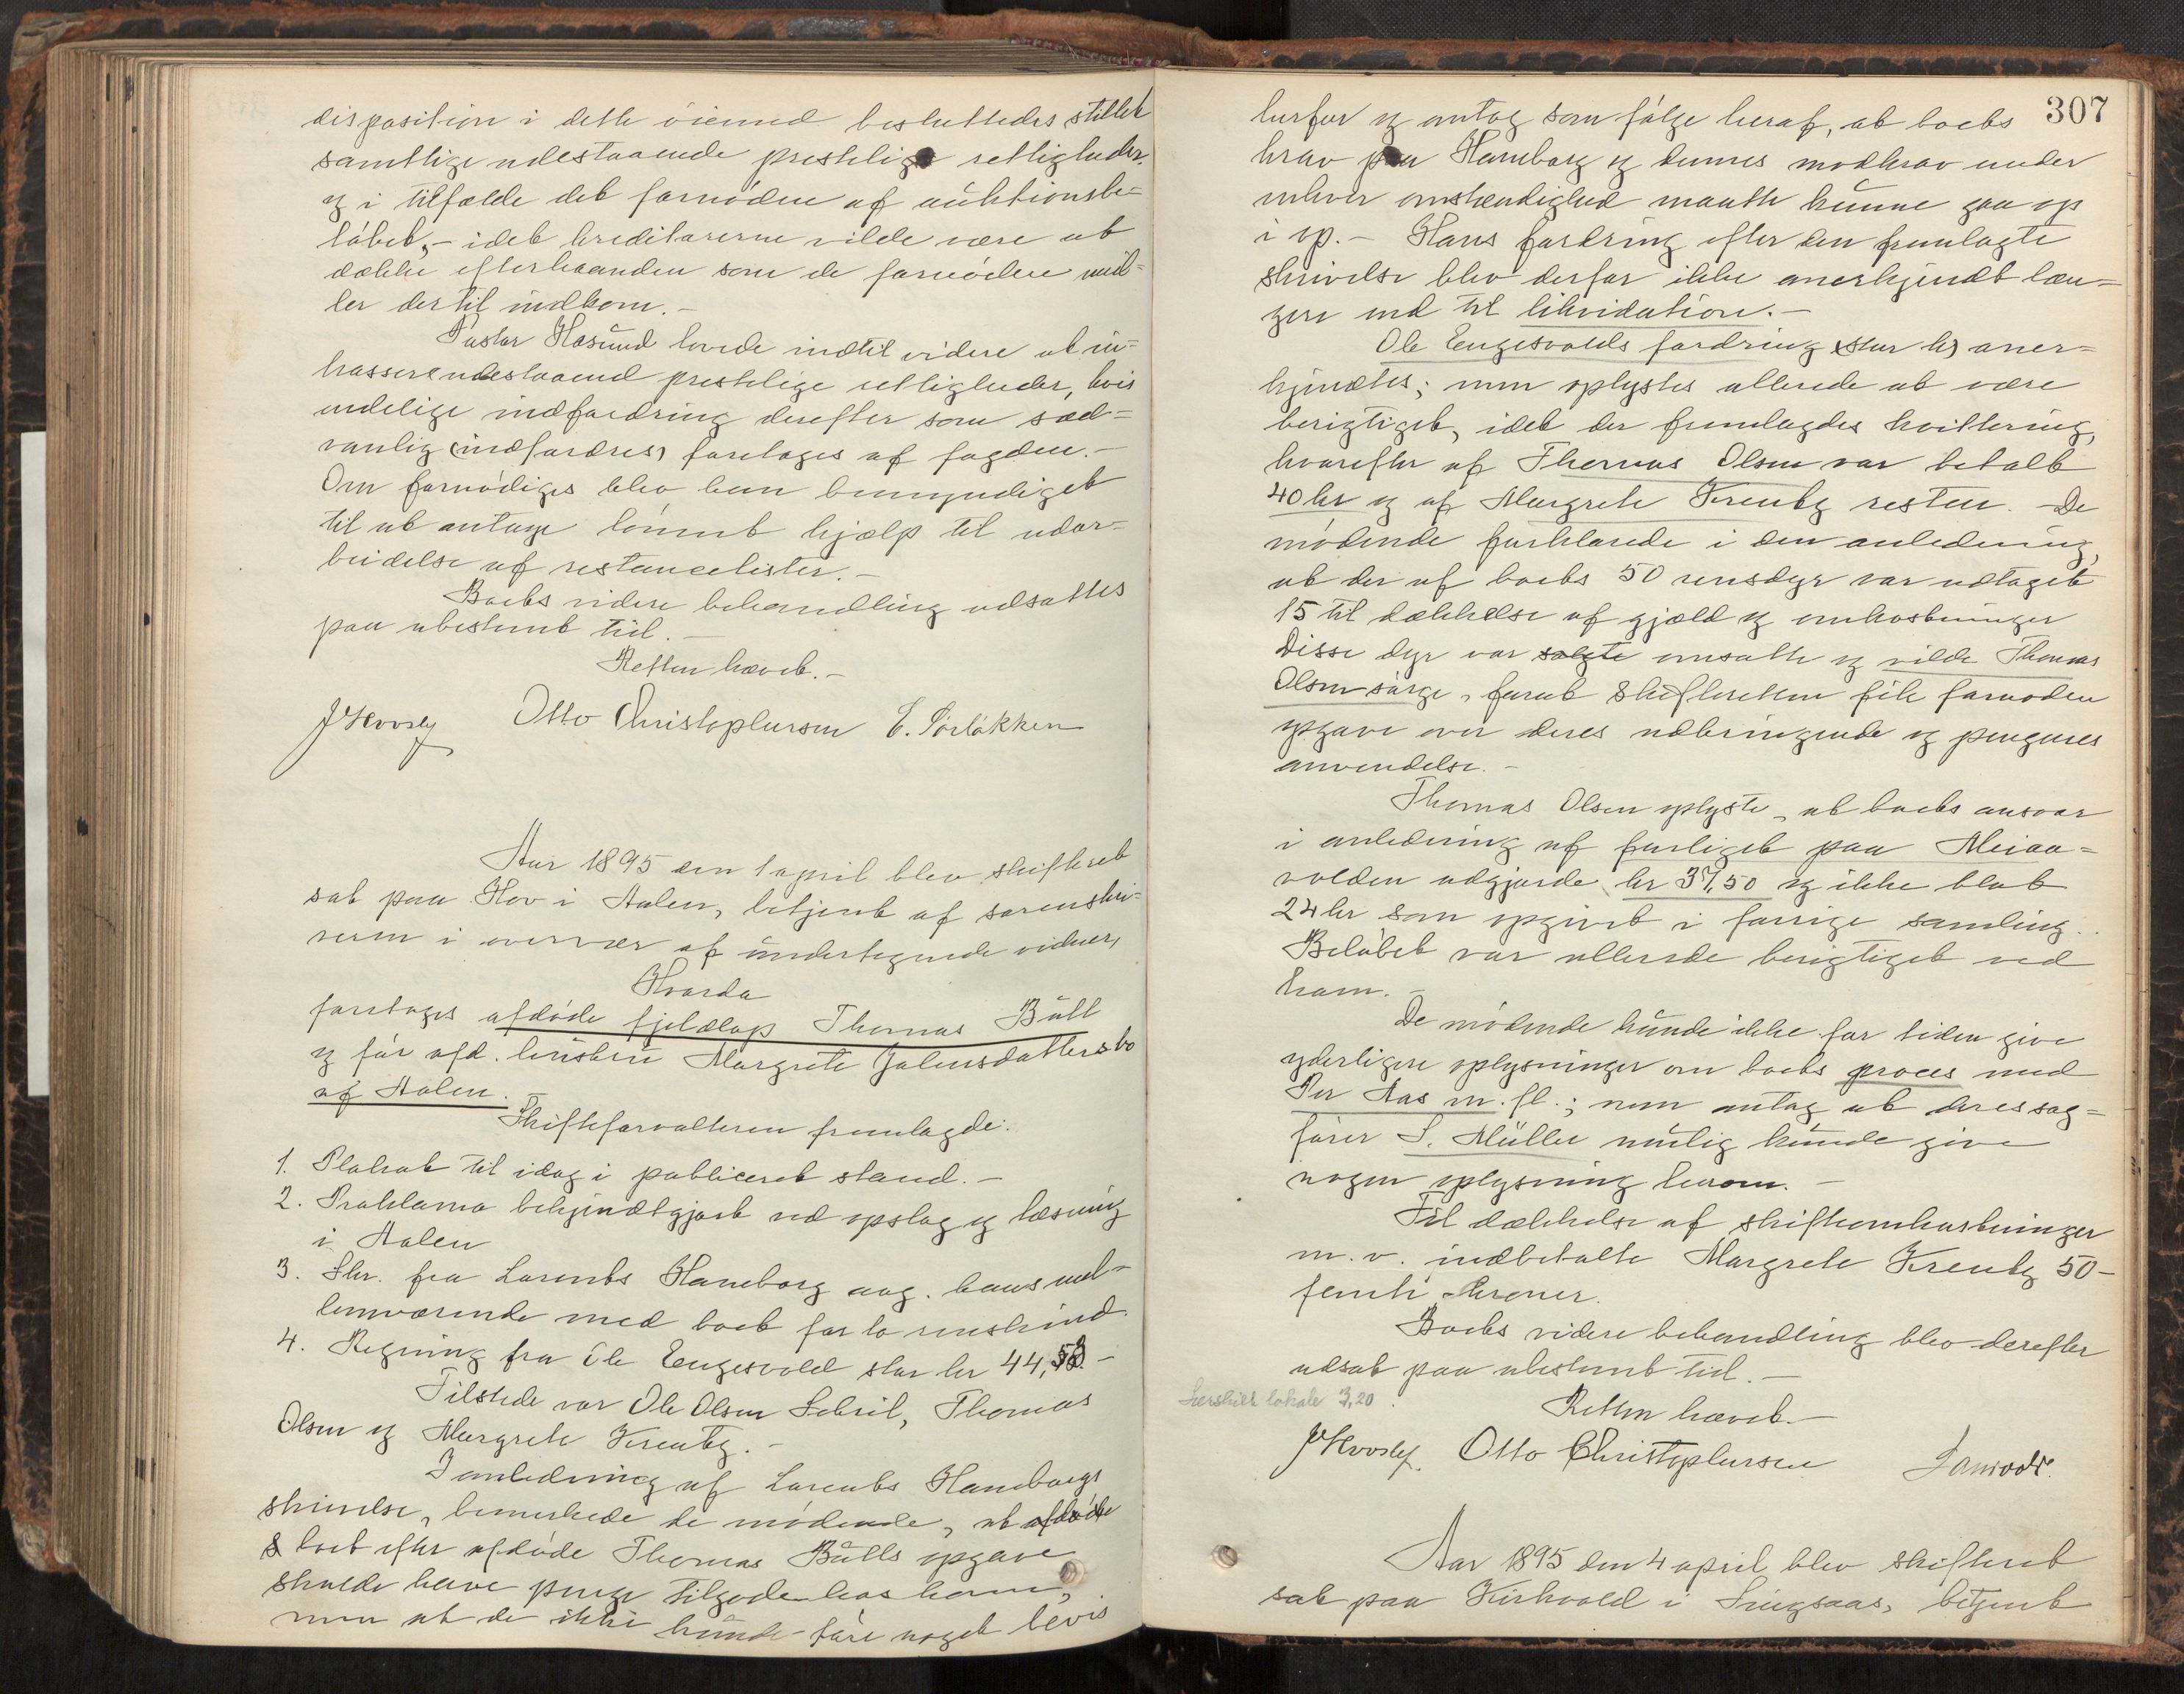 disposition i dette öiemed besluttedes stillet
samtlige udestaaende prestelige rettigheder.
og i tilfælde det fornödne af auktionsbe-
löbet, – idet kreditorerne vilde være at
dække efterhaanden som de fornödne mid-
ler dertil indkom. –
Pastor Hasund lovede indtil videre at in-
kassere udestaaend prestelige rettigheder, hvis
endelige indfordring derefter som sæd-
vanlig (indfordres) foretages af fogden. –
Om fornödiges blev han bemyndiget
til at antage lönnet hjælp til udar-
beidelse af restancelister. –
Boets videre behandling udsattes
paa ubestemt tiid. –
Retten hævet. –
Otto Christophersen E. Sörlökken
Aar 1895 den 1 april blev skifteret
sat paa Hov i Aalen, betjent af sorenskri-
veren i overvær af undertegnede vidner,
Hvorda
foretoges afdöde fjeldlap Thomas Bull
og för afd. hustru Margrete Johnsdatters bo
af Aalen.
Skifteforvalteren fremlagde:
1. Plakat til idag i publiceret stand. –
2. Proklama bekjendtgjort ved opslag og læsning
i Aalen
3. Skr. fra Lorents Hamborg ang. hans mel-
lemværende med boet for to renskind.
4. Regning fra Ole Engesvold stor kr 44,53. –
Tilstede var Ole Olsen Lebril, Thomas
Olsen og Margrete Kreutz. –
I anledning af Lorents Hamborgs
skrivelse, bemerkede de mödende, at afdöde
& boet efter afdöde Thomas Bulls opgave
skulde have penge tilgode hos ham,
men at de ikke kunde före noget bevis
307
herfor og antog som fölge heraf, at boets
krav paa Hamborg og dennes modkrav under
enhver omstendighed maatte kunne gaa op
i op. – Hans fordring efter den fremlagte
skrivelse blev derfor ikke anerkjendt læn-
gere end til likvidation. –
Ole Engesvolds fordring (stor kr) aner-
kjendtes; men oplystes allerede at være
berigtiget, idet der fremlagdes kvittering,
hvorefter af Thomas Olsen var betalt
40 kr og af Margrete Kreutz resten. – De
mödende forklarede i den anledning,
at der af boets 50 rensdyr var udtaget
15 til dækkelse af gjæld og omkostninger
Disse dyr var solgte omsatte og vilde Thomas
Olsen sörge, forat skifteretten fik fornöden
opgave over deres udbringende og pengenes
anvendelse. –
Thomas Olsen oplyste, at boets ansvar
i anledning af forliget paa Meiaa-
volden udgjorde kr 37,50 og ikke blot
24 kr som opgivet i forrige samling.
Belöbet var allerede berigtiget ved
ham. –
De mödende kunde ikke for tiden give
yderligere oplysninger om boets proces med
Per Aas m. fl.; men antog at deres sag-
förer S. Müller mulig kunde give
nogen oplysning herom. –
Til dækkelse af skifteomkostninger
m. v. indbetalte Margrete Kreutz 50 –
femti – kroner.
Boets videre behandling blev derefter
udsat paa ubestemt tid. –
Særskilt lokale 3,20.
Retten hævet. –
Otto Christophersen
Aar 1895 den 4 april blev skifteret
sat paa Kirkvold i Singsaas, betjent